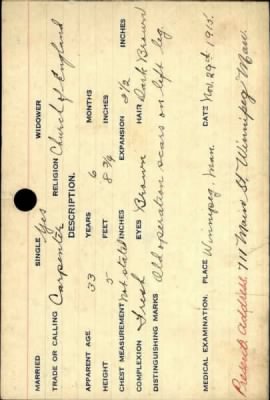 MARRIED SINGLE Yes WIDOWER
TRADE OR CALLING Carpenter RELIGION Church of England
DESCRIPTION.
APPARENT AGE 33 YEARS 6 MONTHS
HEIGHT 5 FEET 8 3/4 INCHES
CHEST MEASUREMENT Not stated INCHES EXPANSION 3 1/2 INCHES
COMPLEXION Fresh EYES Brown HAIR Dark Brown
DISTINGUISHING MARKS Old operation scars on left leg
MEDICAL EXAMINATION. PLACE Winnipeg, Man. DATE Nov. 29th 1915.
Present address: 711 Main St. Winnipeg Man.